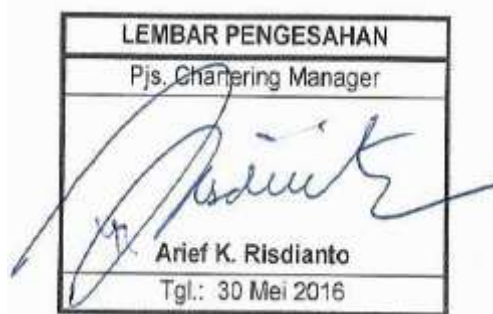 LEMBAR PENGESAHAN
Pjs. Chartering Manager
Arief K. Risdianto
Tgl.: 30 Mei 2016